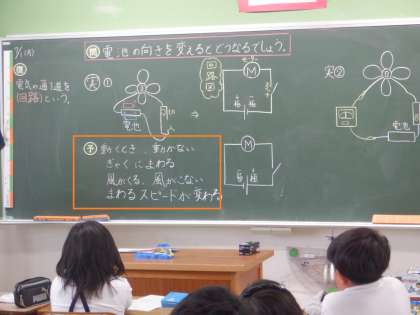 7/1(月)
問 電池の向きを変えるとどうなるでしょう。
復
電気の通り道を
回路という。
実①
電池
⇒
回路図
M
+極
-極
実②
電池
予 動くとき、動かない
ぎゃくにまわる
風がくる、風がこない
まわるスピードが変わる
M